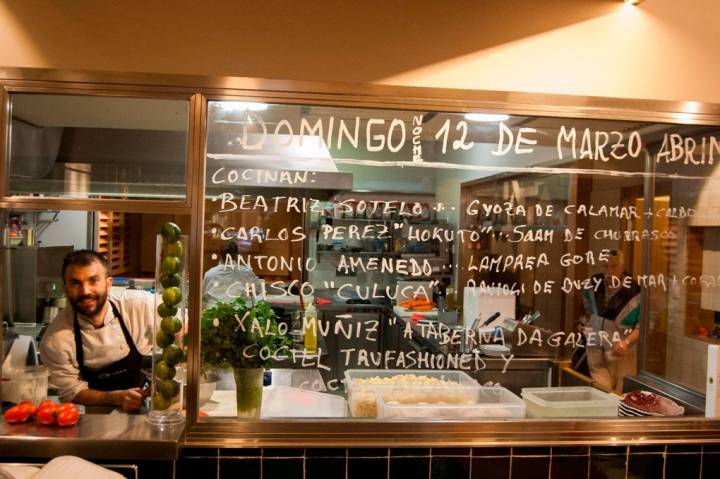 DOMINGO NOCHE 12 DE MARZO ABRIN
COCINAN:
• BEATRIZ SOTELO... GYOZA DE CALAMAR + CALDO
• CARLOS PEREZ "HOKUTO"... SAAM DE CHURRASCO
• ANTONIO AMENEDO... LAMPREA GORE
• CHISCO "CULUCA"... RAVIOLI DE OUZY DE MAR +
• XALO MUÑIZ "A TABERNA DA GALERA"
COCTEL TRUFASHIONED Y